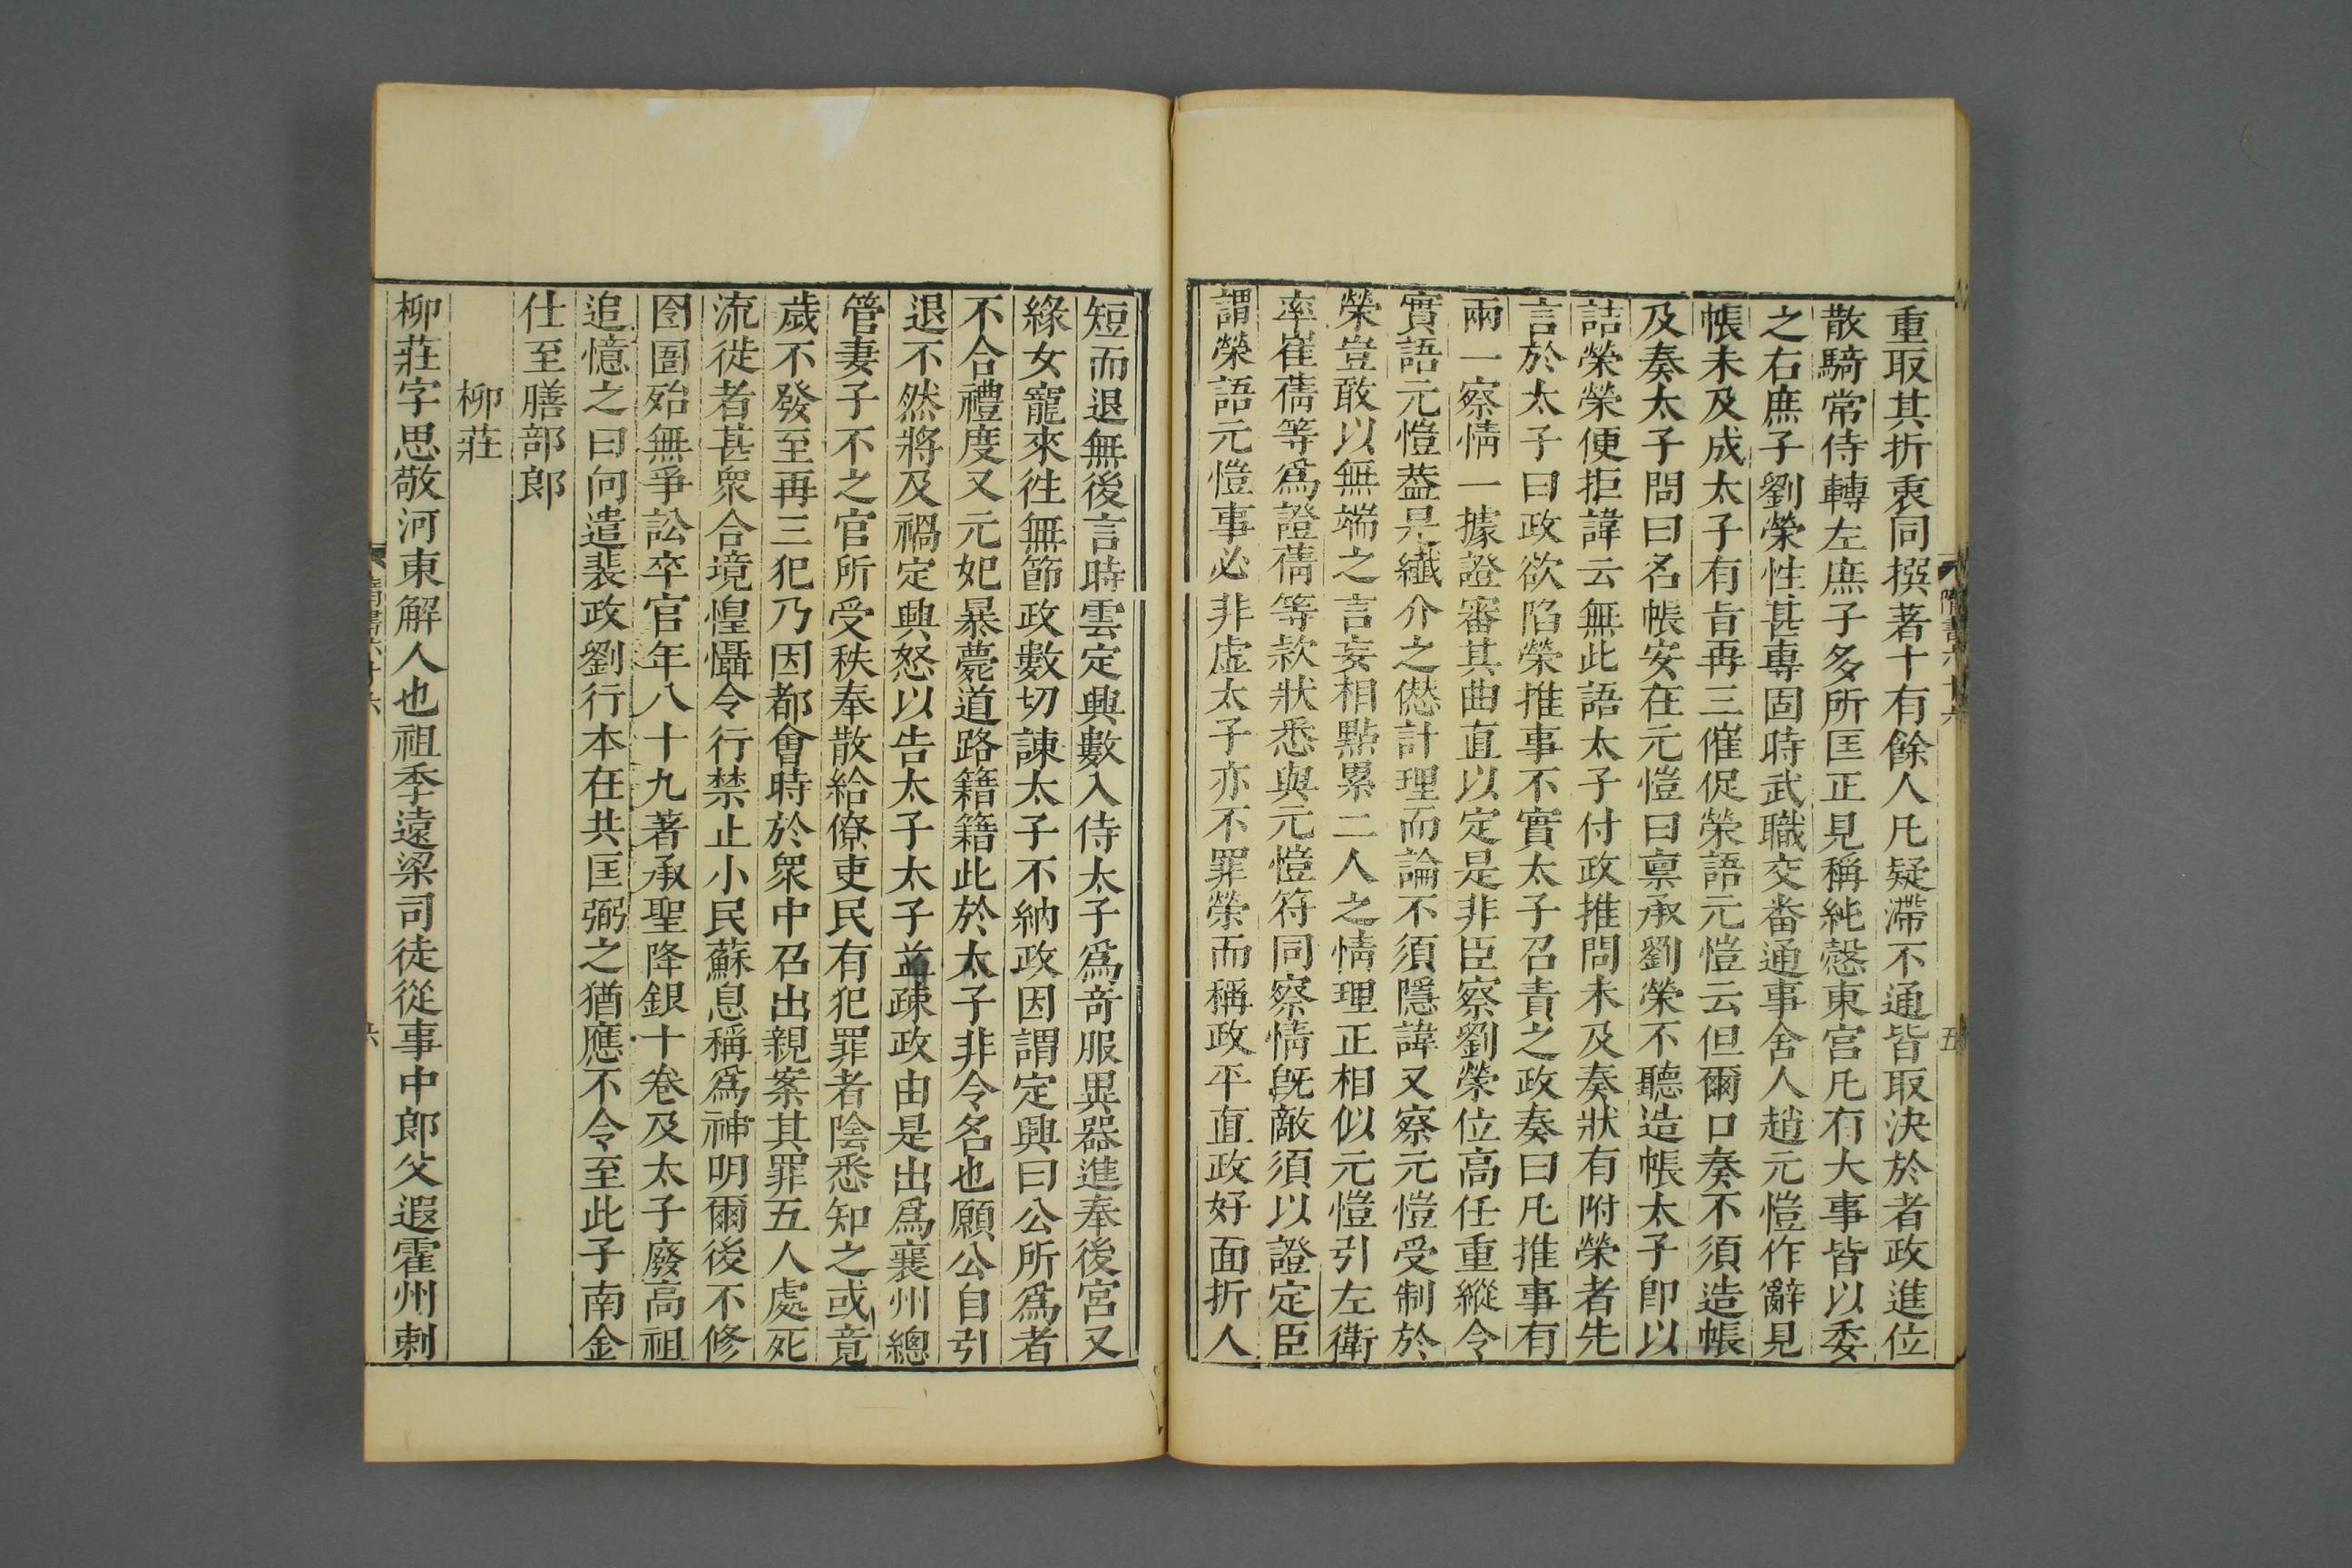 隋書六十六
五
重取其折衷同撰著十有餘人凡疑滯不通皆取決於者政進位
散騎常侍轉左庶子多所匡正見稱純慤東宮凡有大事皆以委
之右庶子劉榮性甚專固時武職交番通事舍人趙元愷作辭見
帳未及成太子有旨再三催促榮語元愷云但爾口奏不須造帳
及奏太子問曰名帳安在元愷曰稟承劉榮不聽造帳太子卽以
詰榮榮便拒諱云無此語太子付政推問未及奏狀有附榮者先
言於太子曰政欲陷榮推事不實太子召責之政奏曰凡推事有
兩一察情一據證審其曲直以定是非臣察劉榮位高任重縱令
實語元愷葢是纖介之僁計理而論不須隱諱又察元愷受制於
榮豈敢以無端之言妄相點累二人之情理正相似元愷引左衛
率崔蒨等爲證蒨等款狀悉與元愷符同察情旣敵須以證定臣
謂榮語元愷事必非虛太子亦不罪榮而稱政平直政好面折人
短而退無後言時雲定興數入侍太子爲奇服異器進奉後宮又
緣女寵來往無節政數切諫太子不納政因謂定興曰公所爲者
不合禮度又元妃暴薨道路籍籍此於太子非令名也願公自引
退不然將及禍定興怒以告太子太子益疎政由是出爲襄州總
管妻子不之官所受秩奉散給僚吏民有犯罪者陰悉知之或竟
歲不發至再三犯乃因都會時於衆中召出親案其罪五人處死
流徙者甚衆合境惶懾令行禁止小民蘇息稱爲神明爾後不修
囹圄殆無爭訟卒官年八十九著承聖降銀十卷及太子廢高祖
追憶之曰向遣裴政劉行本在共匡弼之猶應不令至此子南金
仕至膳部郎
柳莊
柳莊字思敬河東解人也祖季遠梁司徒從事中郎父遐霍州刺
隋書六十六
六